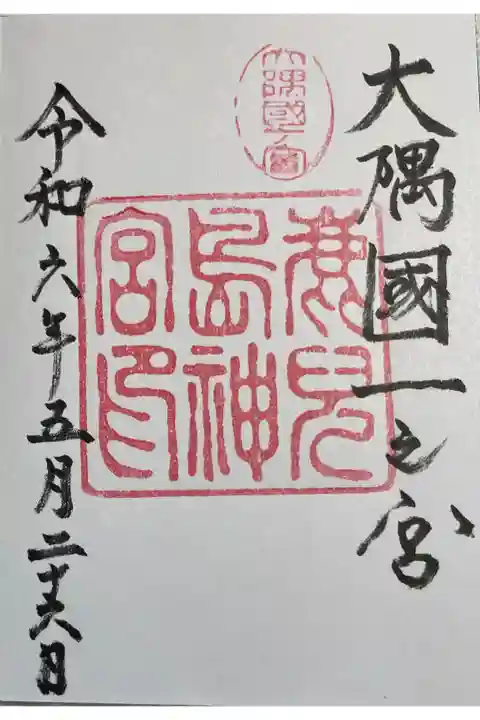 大隅國一之宮
大隅國一之宮
鹿兒
島神
宮印
令和六年五月二十六日